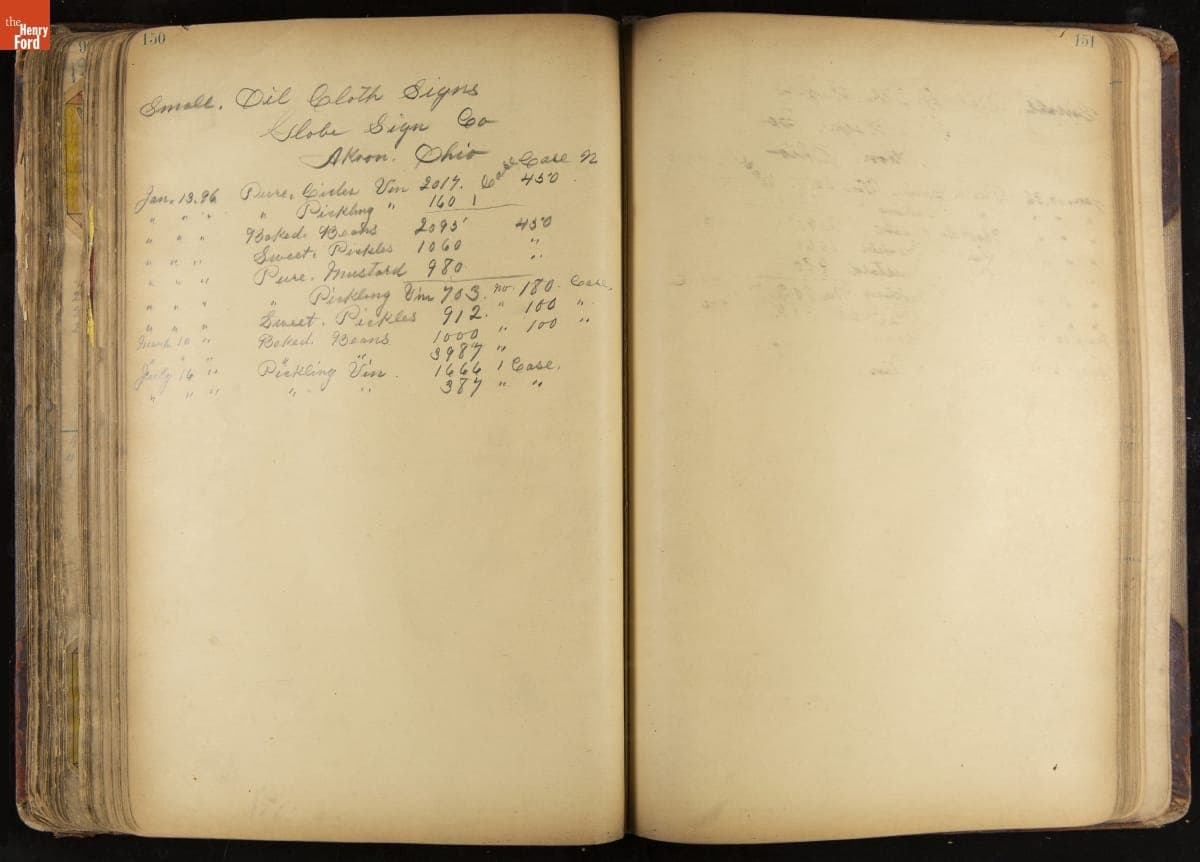 the
Henry
Ford
9
150
Small. Oil Cloth Signs
Globe Sign Co
Akron. Ohio
Case Case N
Jan. 13. 96 Pure. Cider Vin 2017. 450
" " " " Pickling " 160 1
" " " Baked. Beans 2095 450
" " " Sweet. Pickles 1060 "
" " Pure. Mustard 980
" " " " Pickling Vin 703. no. 180. Case.
" " " Sweet. Pickles 912. " 100 "
March 10 " Baked. Beans 1000 " 100 "
" " " " " 3987 "
July 16 " Pickling Vin. 1666 1 Case.
" " " " " 387 " "
151